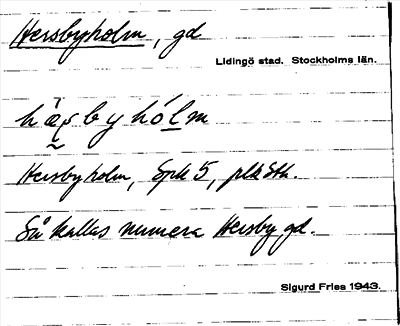 Hersbyholm, gd
Lidingö stad. Stockholms län.
Hersbyholm, Spk 5, plåSth.
Så kallas numera Hersby gd.
Sigurd Fries 1943.